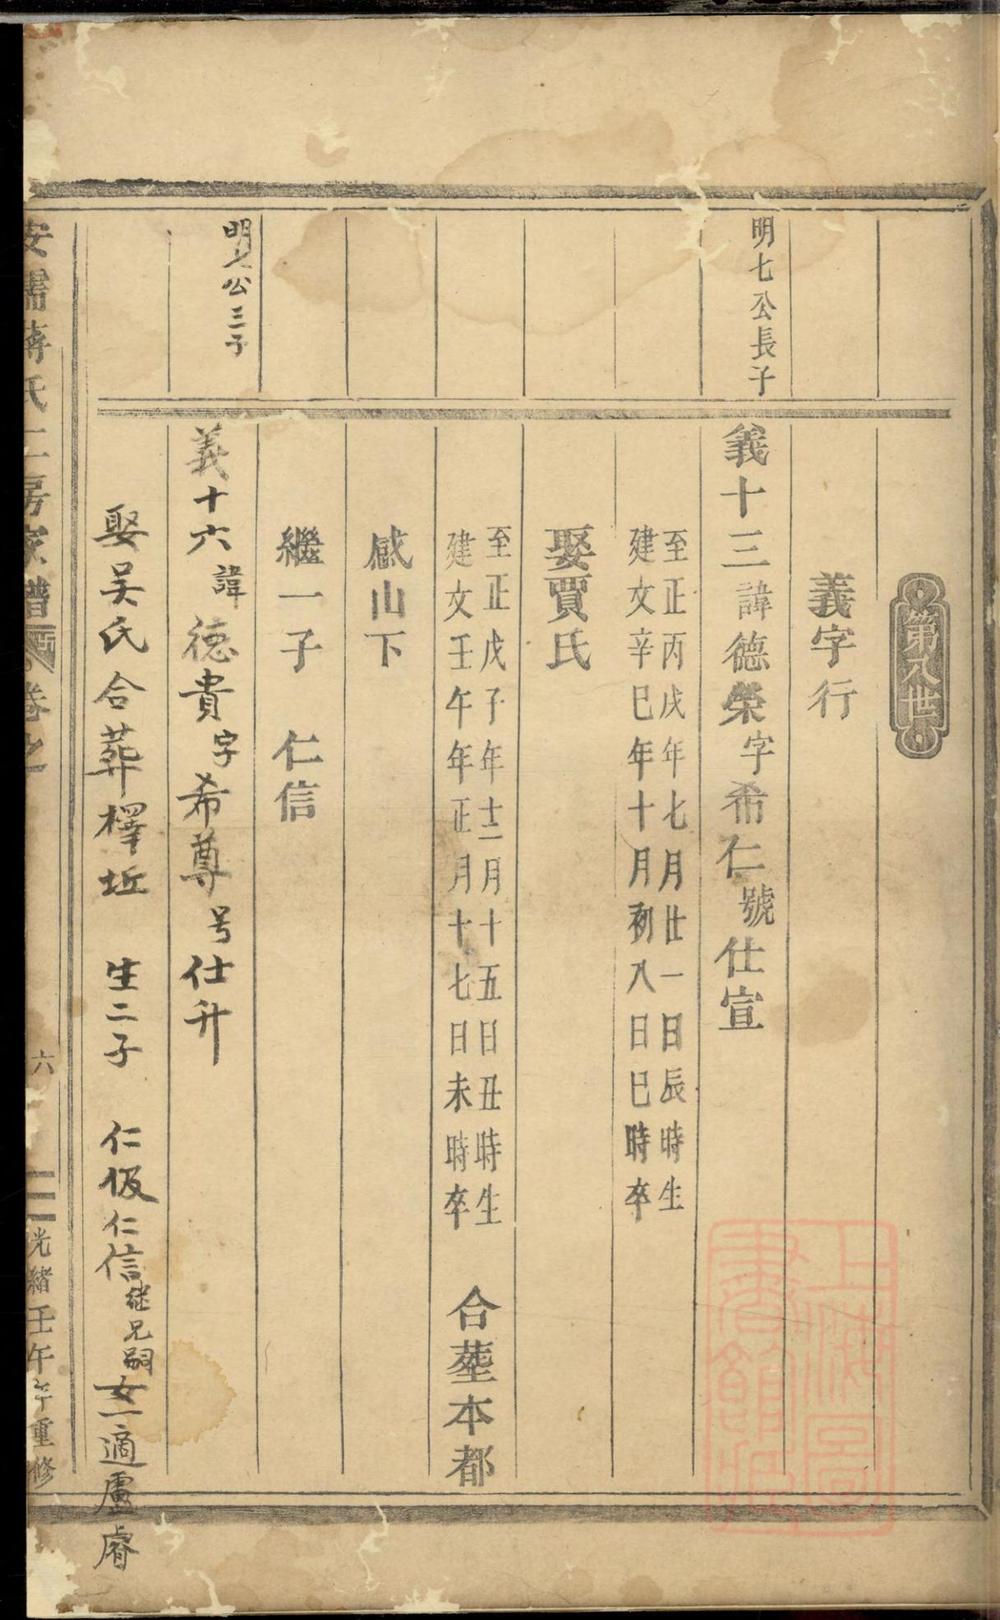 第八世
義字行
明七公長子
義十三諱德榮字希仁號仕宣
至正丙戌年七月廿一日辰時生
建文辛巳年十月初八日巳時卒
娶賈氏
至正戊子年十二月十五日丑時生
建文壬午年正月十七日未時卒
合塟本都
感山下
繼一子 仁信
明七公三子
義十六諱德貴字希尊号仕升
娶吴氏合葬檡坵 生二子 仁伋仁信継兄嗣女一適盧睿
安 蔣氏二房家譜 卷之一
六
光緒壬午年重修
上海圖書館藏